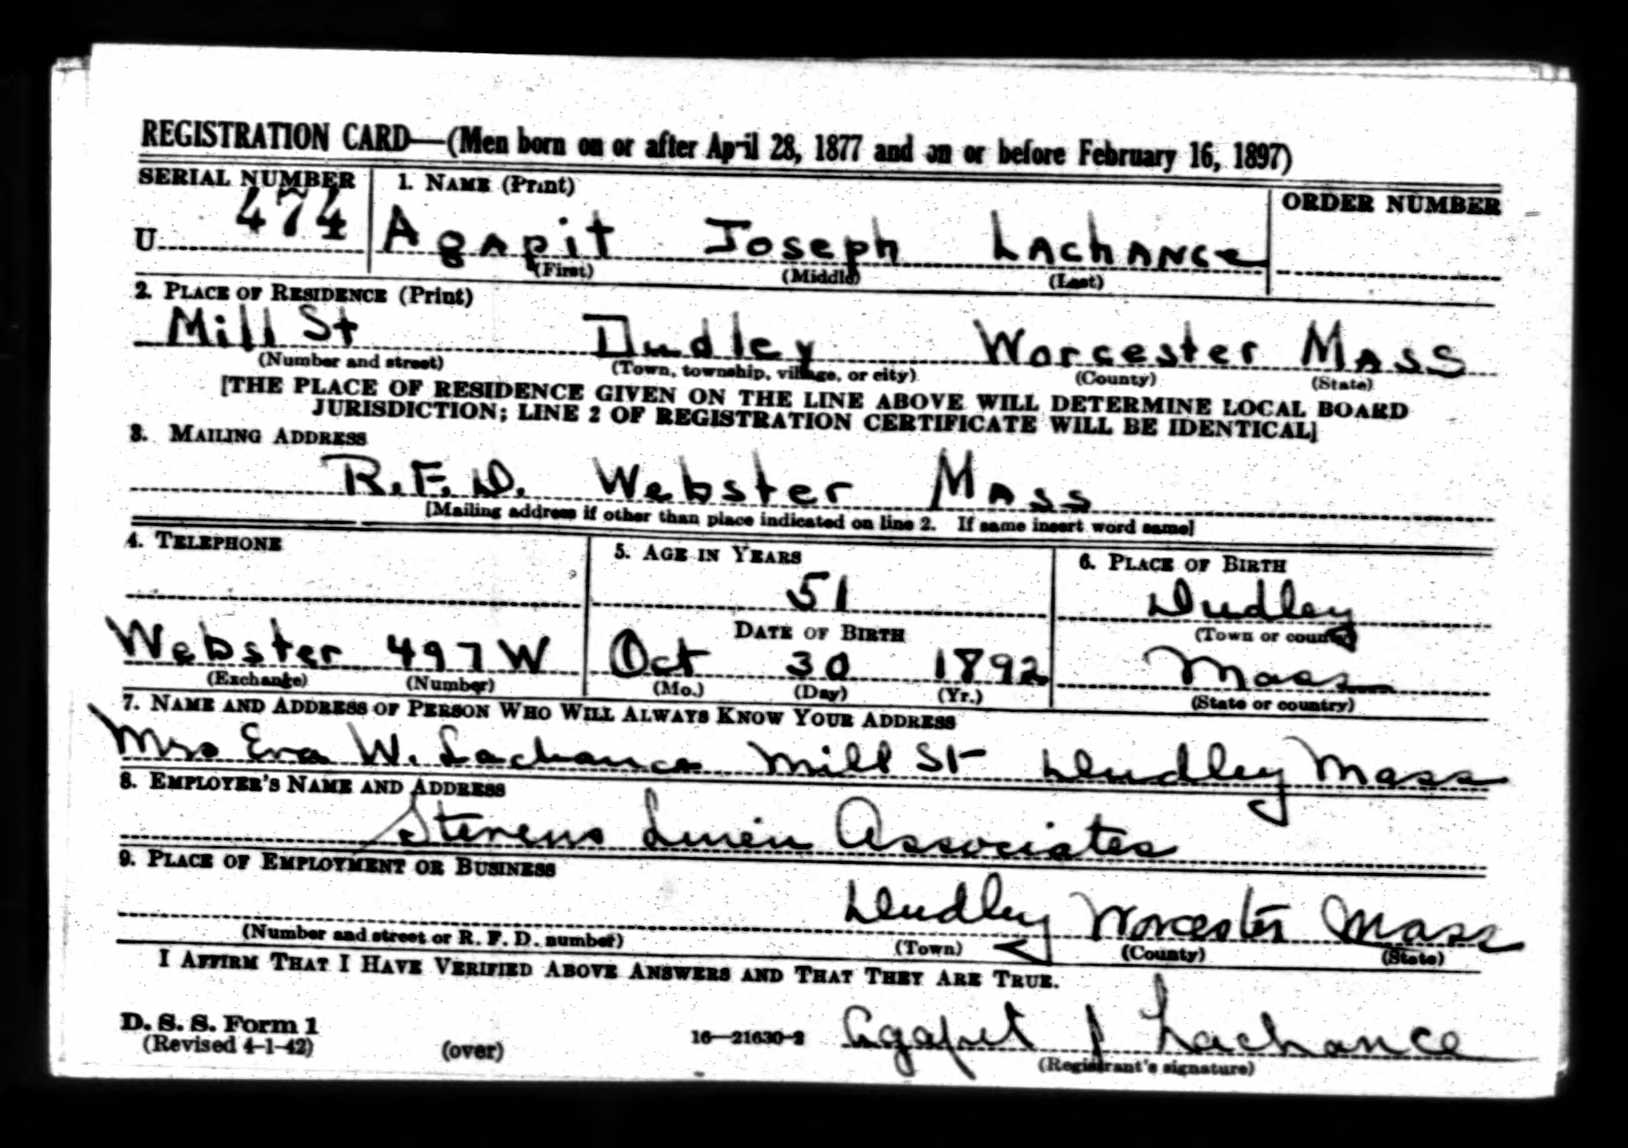 REGISTRATION CARD—(Men born on or after April 28, 1877 and on or before February 16, 1897)
SERIAL NUMBER 1. NAME (Print) ORDER NUMBER
U 474 Agapit Joseph Lachance
(First) (Middle) (Last)
2. PLACE OF RESIDENCE (Print)
Mill St Dudley Worcester Mass
(Number and street) (Town, township, village, or city) (County) (State)
[THE PLACE OF RESIDENCE GIVEN ON THE LINE ABOVE WILL DETERMINE LOCAL BOARD
JURISDICTION; LINE 2 OF REGISTRATION CERTIFICATE WILL BE IDENTICAL]
3. MAILING ADDRESS
R.F.D. Webster Mass
[Mailing address if other than place indicated on line 2. If same insert word same]
4. TELEPHONE 5. AGE IN YEARS 6. PLACE OF BIRTH
51 Dudley
DATE OF BIRTH (Town or county)
Webster 497W Oct 30 1892 Mass
(Exchange) (Number) (Mo.) (Day) (Yr.) (State or country)
7. NAME AND ADDRESS OF PERSON WHO WILL ALWAYS KNOW YOUR ADDRESS
Mrs Eva W. Lachance Mill St Dudley Mass
8. EMPLOYER'S NAME AND ADDRESS
Stevens Linen Associates
9. PLACE OF EMPLOYMENT OR BUSINESS
Dudley Worcester Mass
(Number and street or R. F. D. number) (Town) (County) (State)
I AFFIRM THAT I HAVE VERIFIED ABOVE ANSWERS AND THAT THEY ARE TRUE.
D. S. S. Form 1
(Revised 4-1-42) (over) 16—21630-2 Agapit J Lachance
(Registrant's signature)